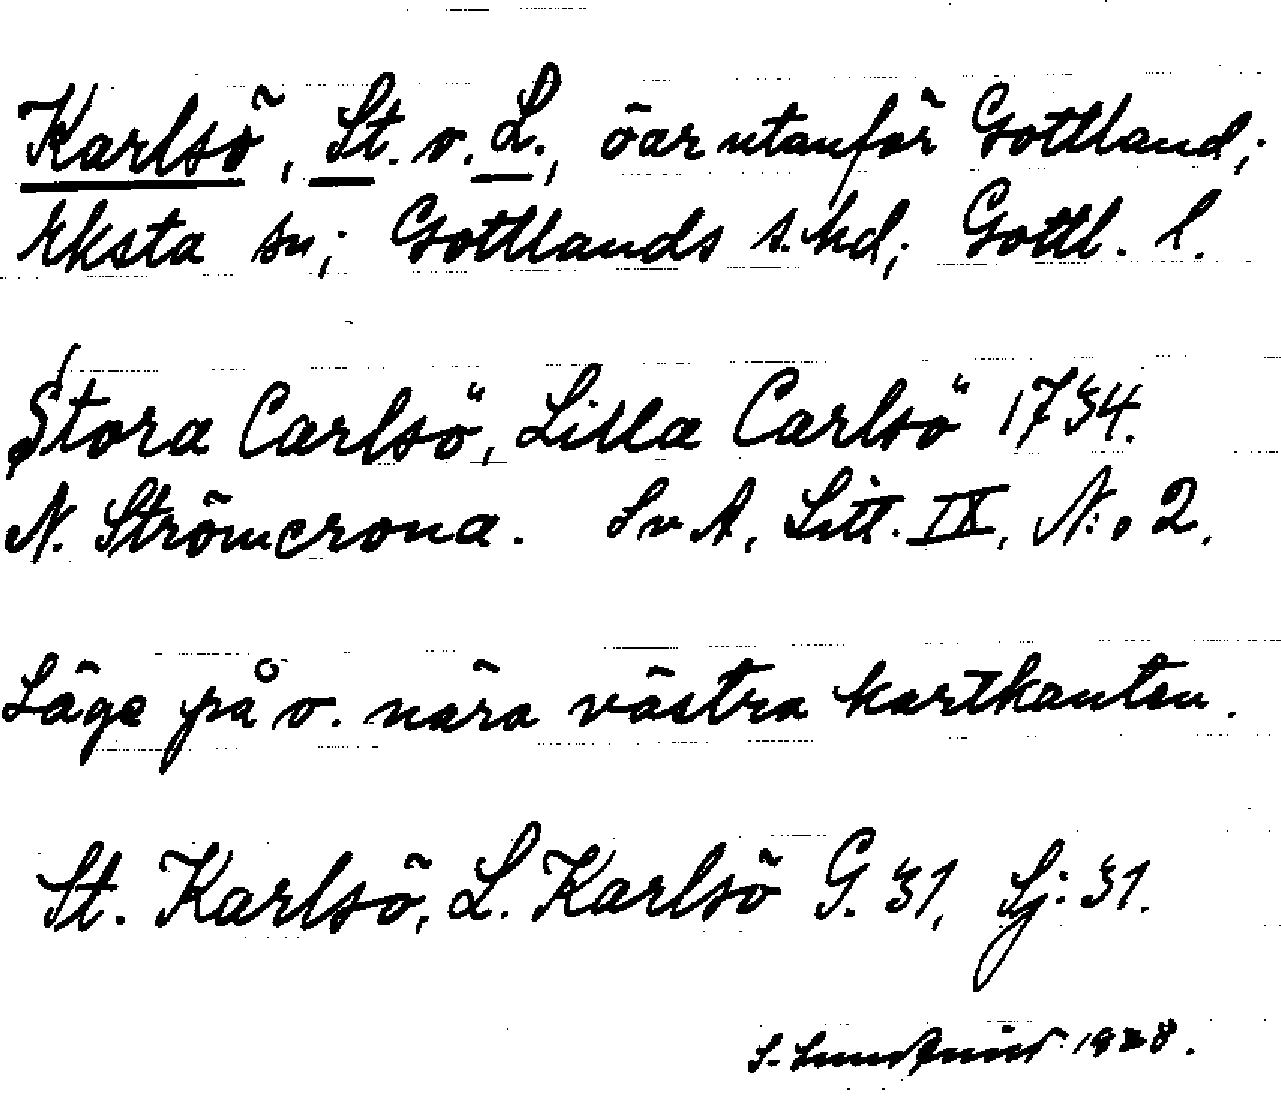 Karlsö, St. o. L., öar utanför Gottland;
Eksta sn; Gottlands s. hd; Gottl. l.
Stora Carlsö, Lilla Carlsö 1734.
N. Strömcrona. Sv A, Litt. IX, N:o 2.
Läge på o. nära västra kartkanten.
St. Karlsö, L. Karlsö G. 31, Sj: 31.
S. Lundqvist 1928.